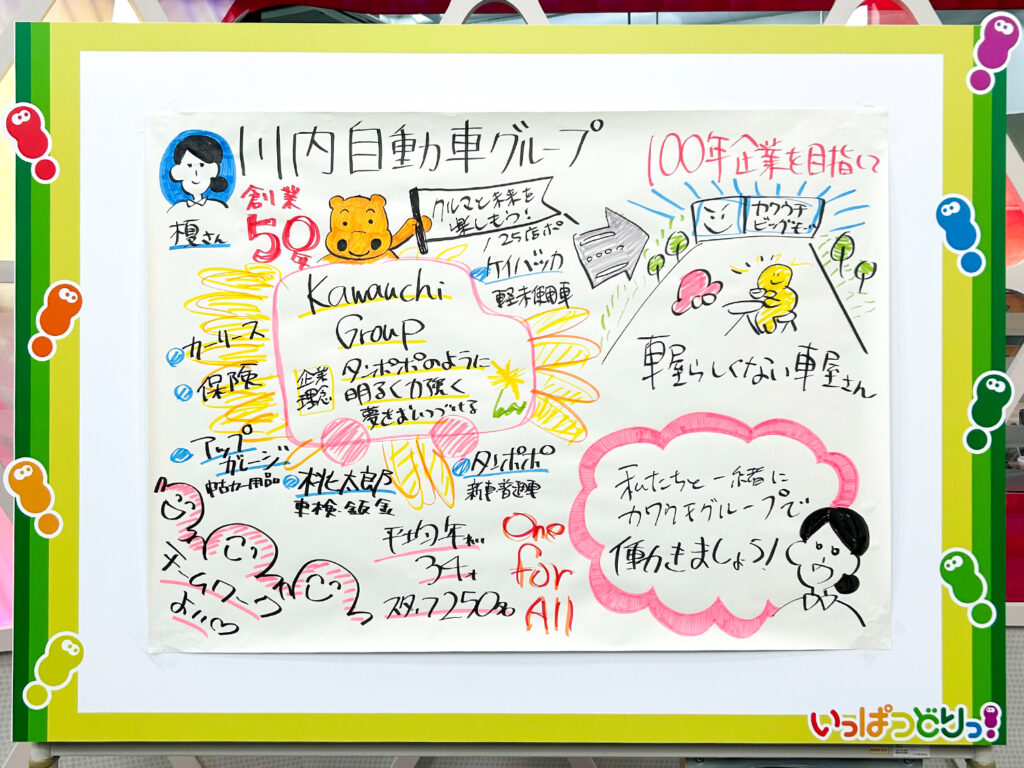 川内自動車グループ
榎さん
創業
50年
クルマと未来を
楽しもう!
/25店ポ
100年企業を目指して
カワウチ
ケイバッカ
軽未使用車
Kawauchi
Group
企業
理念
タンポポのように
明るく力強く
夢を
カーリース
保険
アップ
ガレージ
中古カー用品
桃太郎
車検・鈑金
タンポポ
車屋らしくない車屋さん
チームワーク
よい♡
平均年
34才
スタッフ250名
One
for
All
私たちと一緒に
カワウチグループで
働きましょう!
いっぱつどりっ!